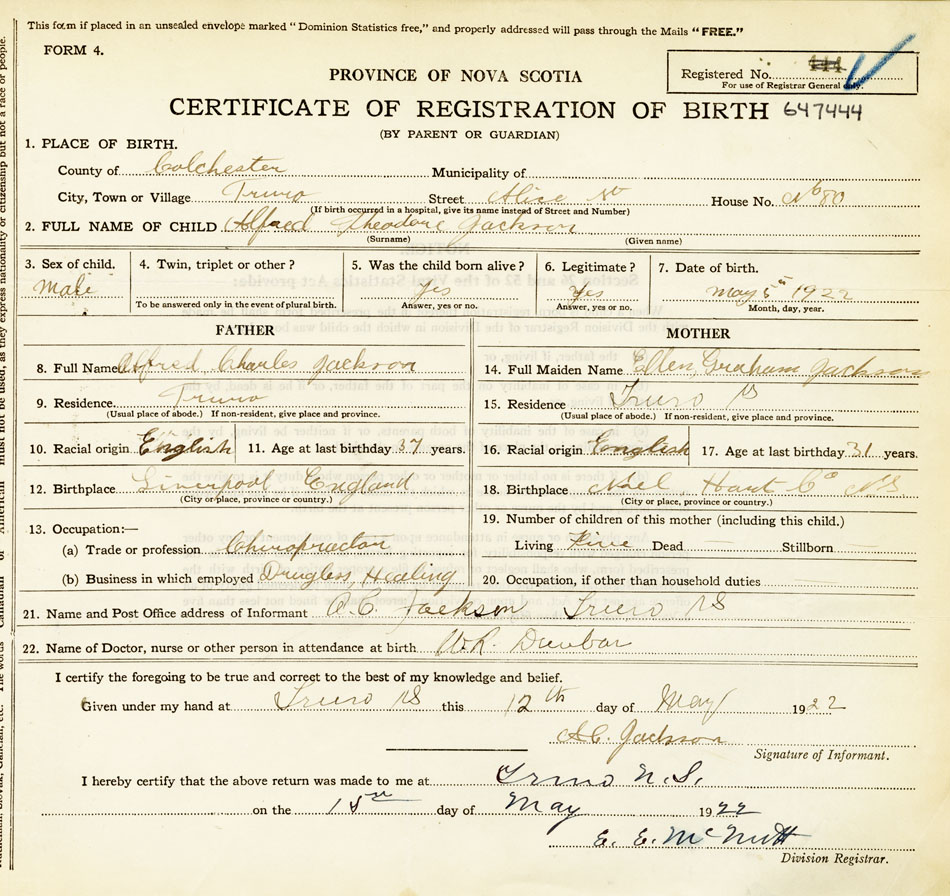 This form if placed in an unsealed envelope marked “Dominion Statistics free,” and properly addressed will pass through the Mails “FREE.”
FORM 4.
PROVINCE OF NOVA SCOTIA
Registered No. 444
For use of Registrar General only.
CERTIFICATE OF REGISTRATION OF BIRTH 647444
(BY PARENT OR GUARDIAN)
1. PLACE OF BIRTH.
County of Colchester Municipality of
City, Town or Village Truro Street Alice St House No. No 80
(If birth occurred in a hospital, give its name instead of Street and Number)
2. FULL NAME OF CHILD Alfred Theodore Jackson
(Surname) (Given name)
3. Sex of child. 4. Twin, triplet or other? 5. Was the child born alive? 6. Legitimate? 7. Date of birth.
Male Yes Yes May 5th 1922
To be answered only in the event of plural birth. Answer, yes or no. Answer, yes or no. Month, day, year.
FATHER
8. Full Name Alfred Charles Jackson
9. Residence Truro
(Usual place of abode.) If non-resident, give place and province.
10. Racial origin English 11. Age at last birthday 37 years.
12. Birthplace Liverpool England
(City or place, province or country.)
13. Occupation:—
(a) Trade or profession Chiropractor
(b) Business in which employed Drugless Healing
MOTHER
14. Full Maiden Name Ellen Graham Jackson
15. Residence Truro NS
(Usual place of abode.) If non-resident, give place and province.
16. Racial origin English 17. Age at last birthday 31 years.
18. Birthplace Noel, Hant Co NS.
(City or place, province or country.)
19. Number of children of this mother (including this child.)
Living Five Dead — Stillborn
20. Occupation, if other than household duties
21. Name and Post Office address of Informant A.C. Jackson Truro NS
22. Name of Doctor, nurse or other person in attendance at birth W.R. Dunbar
I certify the foregoing to be true and correct to the best of my knowledge and belief.
Given under my hand at Truro NS this 12th day of May 1922
A.C. Jackson
Signature of Informant.
I hereby certify that the above return was made to me at Truro N.S.
on the day of May 1922
E. E. McNutt
Division Registrar.